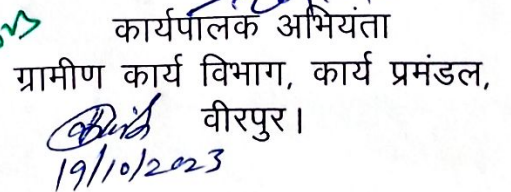 कार्यपालक अभियंता
ग्रामीण कार्य विभाग, कार्य प्रमंडल,
वीरपुर।
19/10/2023